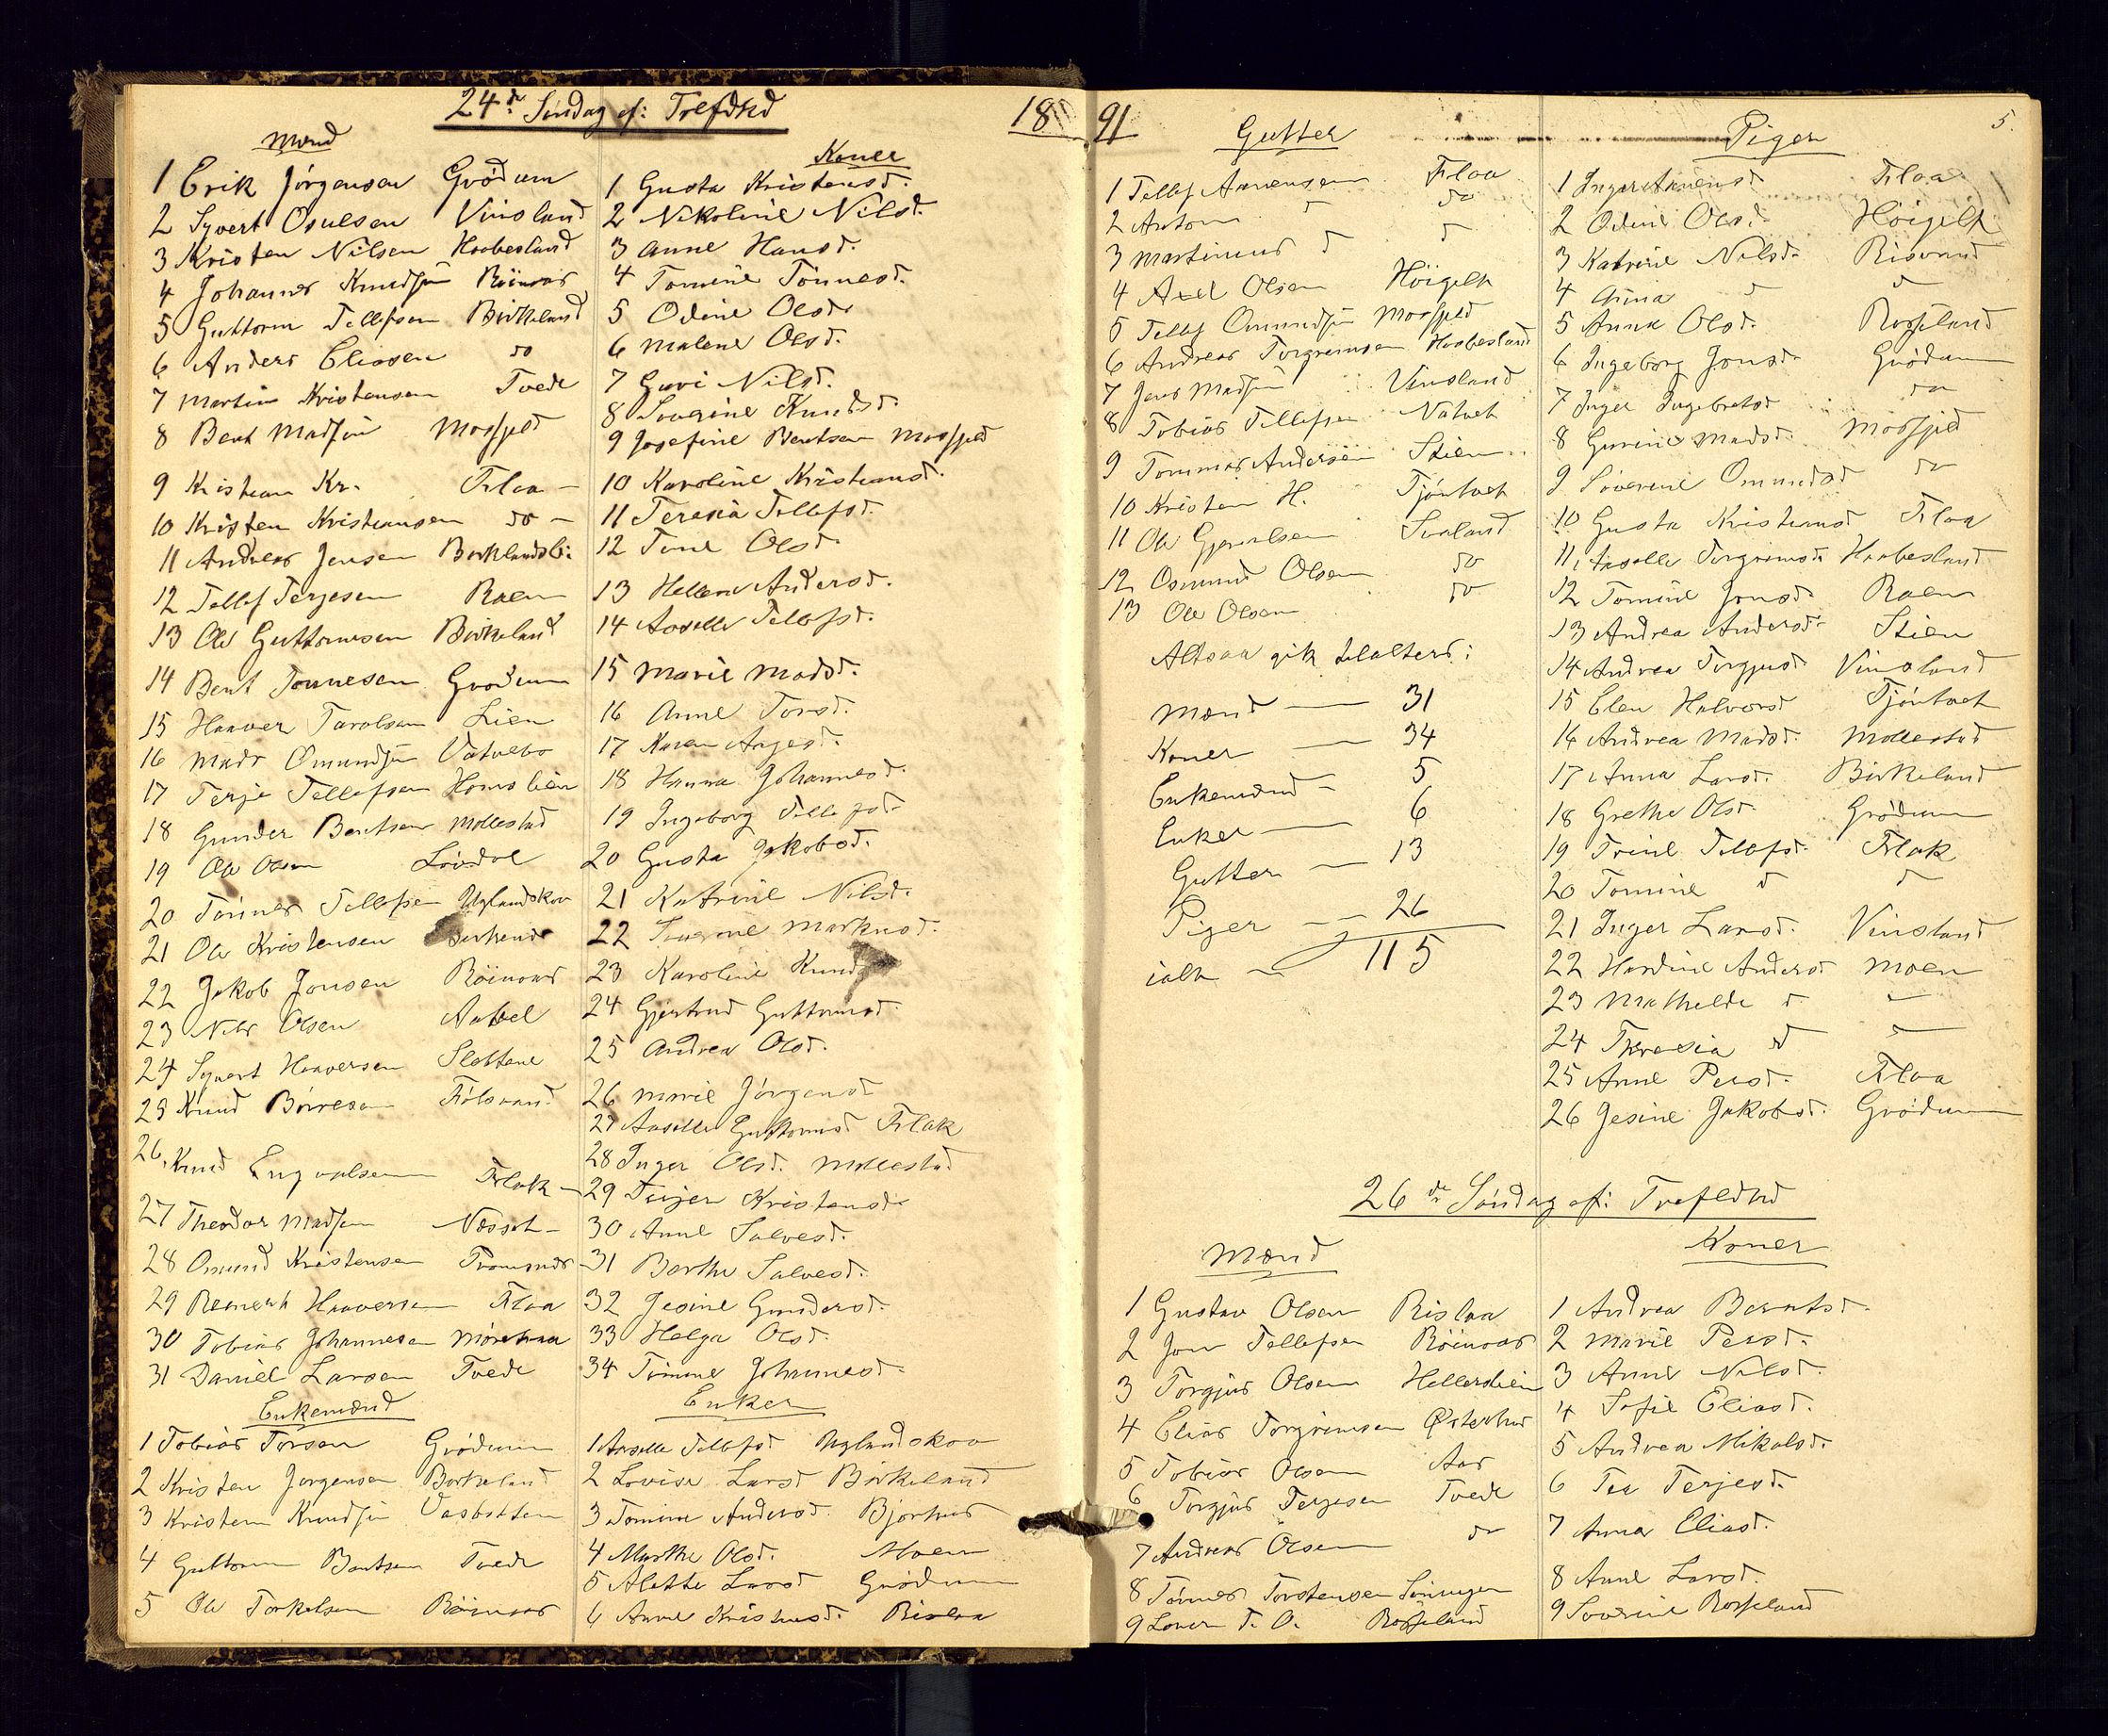 24de Søndag ef: Trefdhd
18
Mænd
1 Erik Jørgensen Grødum
2 Syvert Osulsen Vinsland
3 Kristen Nilsen Haabesland
4 Johannes Knudsen Röinaas
5 Guttorm Tellefsen Birkeland
6 Anders Eliasen do
7 Martin Kristensen Tvede
8 Bent Madsen Mosfjeld
9 Kristian Kr. Flaa
10 Kristen Kristiansen do
11 Andreas Jensen Birklandsli
12 Tellef Terjesen Raen
13 Ole Guttormsen Birkeland
14 Bent Tønnesen Grødum
15 Haaver Taralsen Lien
16 Mads Omundsen Vatnebo
17 Terje Tellefsen Homslien
18 Gunder Bentsen Mollestad
19 Ole Olsen Løvdal
20 Tønnes Tellefsen Uglandskov
21 Ole Kristensen
22 Jakob Jonsen Röinaas
23 Nils Olsen Aabel
24 Syvert Haaversen Slottene
25 Knud Børresen Følsvand
26 Knud Engvalsen Flak
27 Theodor Madsen Næsset
28 Omund Kristensen Tromsnes
29 Reinert Haaversen Flaa
30 Tobias Johannesen
31 Daniel Larsen Tvede
Enkemænd
1 Tobias Torsen Grødum
2 Kristen Jørgensen Birkeland
3 Kristen Knudsen Vasbotten
4 Guttorm Bentsen Tvede
5 Ole Torkelsen Röinaas
Koner
1 Gusta Kristensd.
2 Nikoline Nilsd.
3 Anne Hansd.
4 Tomine Tønnesd.
5 Odine Olsd.
6 Malene Olsd.
7 Guri Nilsd.
8 Severine Knudsd.
9 Josefine Bentsen Mosfjeld
10 Karoline Kristiansd.
11 Teresia Tellefsd.
12 Tone Olsd.
13 Hellene Andersd.
14 Aaselle Tellefsd.
15 Marie Madsd.
16 Anne Torsd.
17 Karen Aagesd.
18 Hanna Johannesd.
19 Ingeborg Tellefsd.
20 Gusta Jakobsd.
21 Katrine Nilsd.
22 Markusd.
23 Karoline Knud
24 Gjertrud Guttormsd.
25 Andrea Olsd.
26 Marie Jørgensd
27 Aaselle Guttormsd Flak
28 Inger Olsd. Mollestad
29 Kristensd.
30 Anne Salvesd.
31 Berthe Salvesd.
32 Jesine Gundersd.
33 Helga Olsd.
34 Tomine Johannesd.
Enker
1 Aaselle Tellefsd Uglandskov
2 Lovise Larsd Birkeland
3 Tomine Andersd. Bjorhus
4 Marthe Olsd. Moen
5 Alette Larsd Grødum
6 Anne Kristensd. Rislaa
91
5.
Gutter
1 Tellef Aanensen Flaa
2 Anton d do
3 Martinius d d
4 Axel Olsen Höigilt
5 Tellef Omundsen Mosfjeld
6 Andreas Torgrimsen Haabesland
7 Jens Madsen Vinsland
8 Tobias Tellefsen Natvet
9 Tommas Andersen Stien
10 Kristen H. Tjøntvet
11 Ole Gjerulsen Svaland
12 Osmund Olsen do
13 Ole Olsen do
Altsaa gik tilalters:
Mænd — 31
Koner — 34
Enkemænd — 5
Enker — 6
Gutter — 13
Piger — 26
ialt — 115
Piger
1 Inger Aanensd Flaa
2 Odine Olsd. Höigilt
3 Katrine Nilsd. Risvand
4 Anna d d
5 Anna Olsd. Rosseland
6 Ingeborg Jonsd. Grødum
7 Inger Ingebretsd do
8 Gurine Madsd. Mosfjeld
9 Severine Omundsd do
10 Gusta Kristiansd Flaa
11 Aaselle Torgrimsd. Haabesland
12 Tomine Jonsd. Raen
13 Andrea Andersd. Stien
14 Andrea Torgjusd. Vinsland
15 Elen Halvorsd Tjøntvet
16 Andrea Madsd. Mollestad
17 Anna Larsd. Birkeland
18 Grethe Olsd. Grødum
19 Trine Tellefsd. Flak
20 Tomine d d
21 Inger Larsd. Vinsland
22 Hardine Andersd Moen
23 Mathilde d
24 Theresia d
25 Anne Persd. Flaa
26 Jesine Jakobsd. Grødum
26de Søndag eft: Trefledhd
Mænd
1 Gustav Olsen Rislaa
2 Jon Tellefsen Röinaas
3 Torgjus Olsen Hellerslien
4 Elias Torgrimsen Østerhus
5 Tobias Olsen Aas
6 Torgjus Terjesen Tvede
7 Andreas Olsen do
8 Tønnes Torstensen
9 T. O. Rosseland
Koner
1 Andrea Berntsd.
2 Marie Persd.
3 Anne Nilsd.
4 Sofie Eliasd.
5 Andrea Nikolsd.
6 Tea Terjesd.
7 Anna Eliasd.
8 Anne Larsd.
9 Severine Rosseland